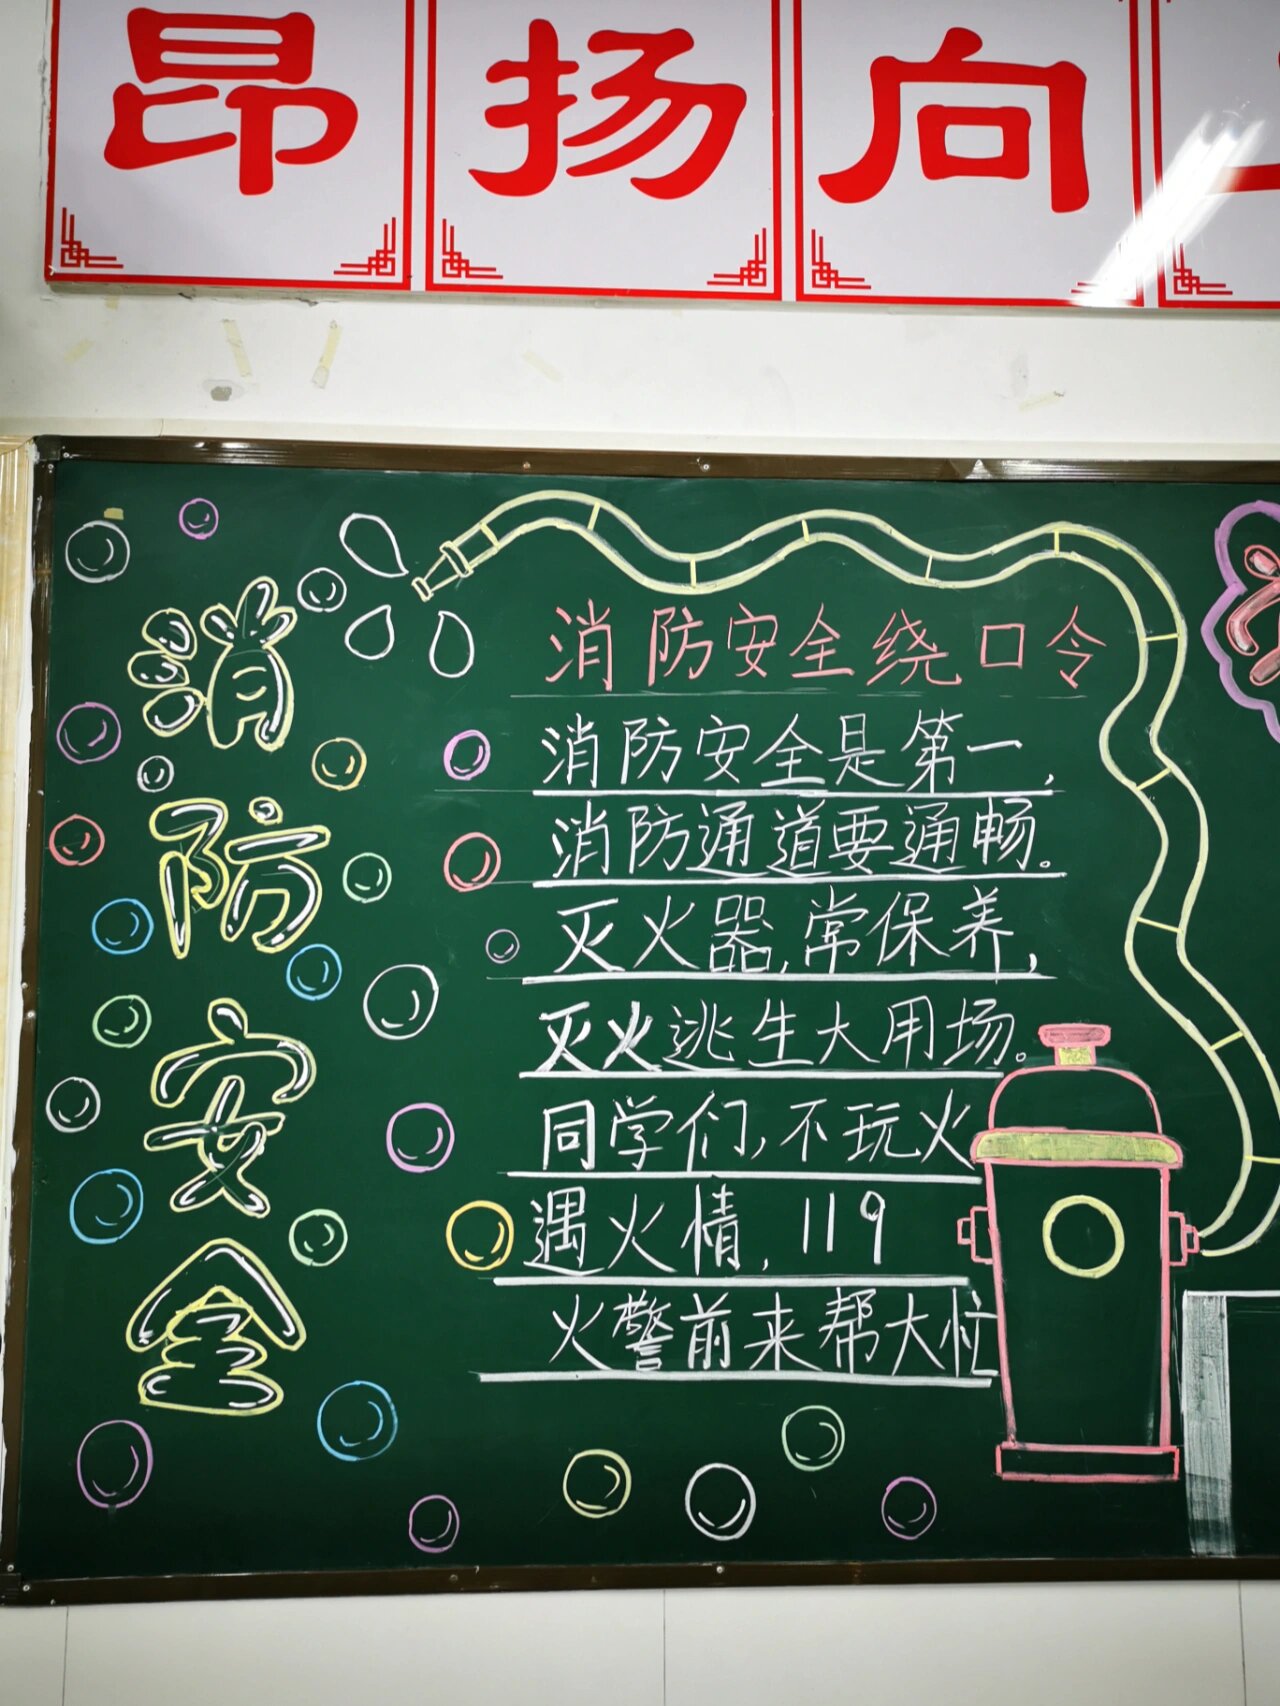 昂扬向
消防安全
消防安全绕口令
消防安全是第一,
消防通道要通畅。
灭火器,常保养,
灭火逃生大用场。
同学们,不玩火
遇火情,119
火警前来帮大忙